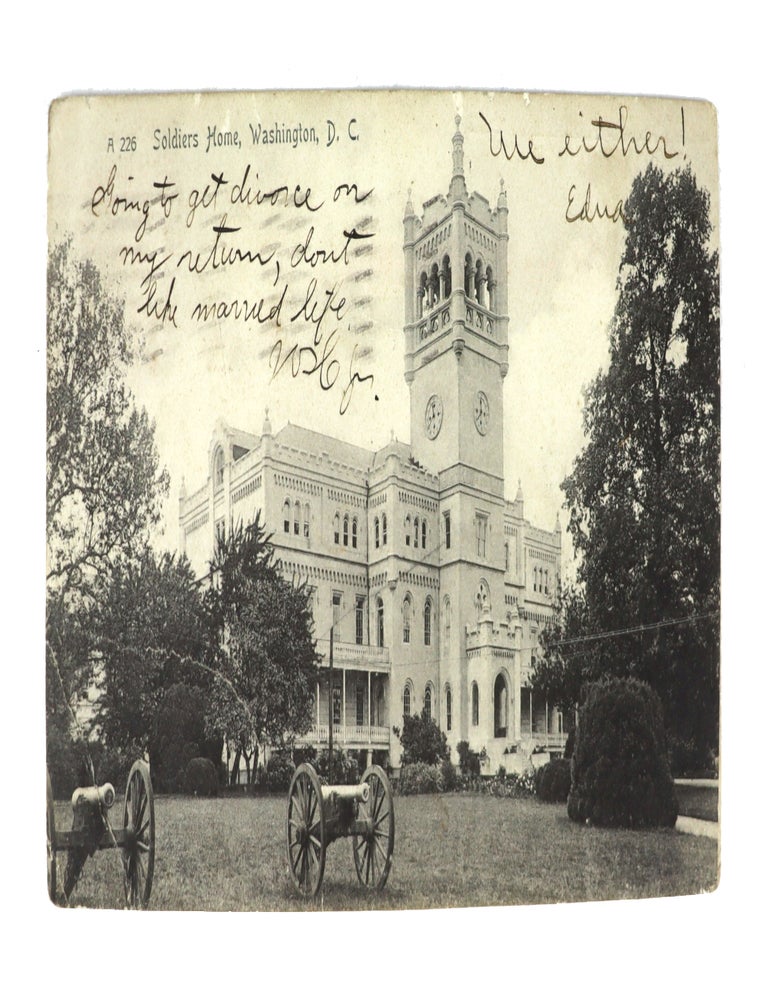 A 226 Soldiers Home, Washington, D. C.
Going to get divorce on
my return, dont
like married life
Me either!
Edna